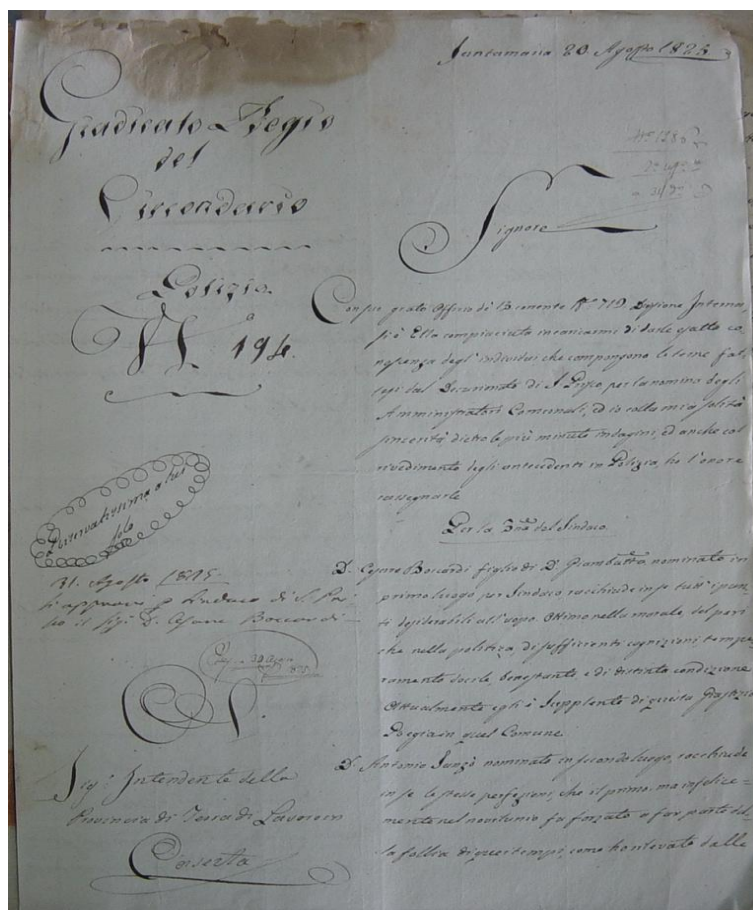 Santamaria 20 Agosto 1825
Giudicato Regio
del
Circondario
Polizia
N.° 194.
Riservatissima a lui
solo
31. Agosto 1825.
si approvi p Sindaco di S. Pri=
sco il Sig. D. Cesare Boccardi
Sig.r Intendente della
Provincia di Terra di Lavoro in
Caserta
Signore
Con suo grato Officio di 13 corrente N.° 719. Divisione Interna,
si è Ella compiaciuta incaricarmi di darle esatta co=
noscenza degl'individui che compongono le terne fat=
tesi dal Decurionato di S. Prisco per la nomina degli
Amministratori Comunali, ed io colla mia solita
sincerità, dietro le più minute indagini, ed anche col
rivedimento degli antecedenti in Polizia, ho l'onore
rassegnarle
Per la Terna del Sindaco
D. Cesare Boccardi figlio di D. Giambatta nominato in
primo luogo per Sindaco, racchiude in se tutt'i pun=
ti desiderabili all'uopo. Ottimo nella morale, del pari
che nella politica, di sufficienti cognizioni, tempe=
ramento docile, benestante e di distinta condizione
Attualmente egli è Supplente di questa Giustizia
Regia in quel Comune.
D. Antonio nominato in secondo luogo, racchiude
in se le stesse perfezioni, che il primo, ma infelice=
mente nel nonimestre fu forzato a far parte del=
la follia di quei tempi, come ho rilevato dalle